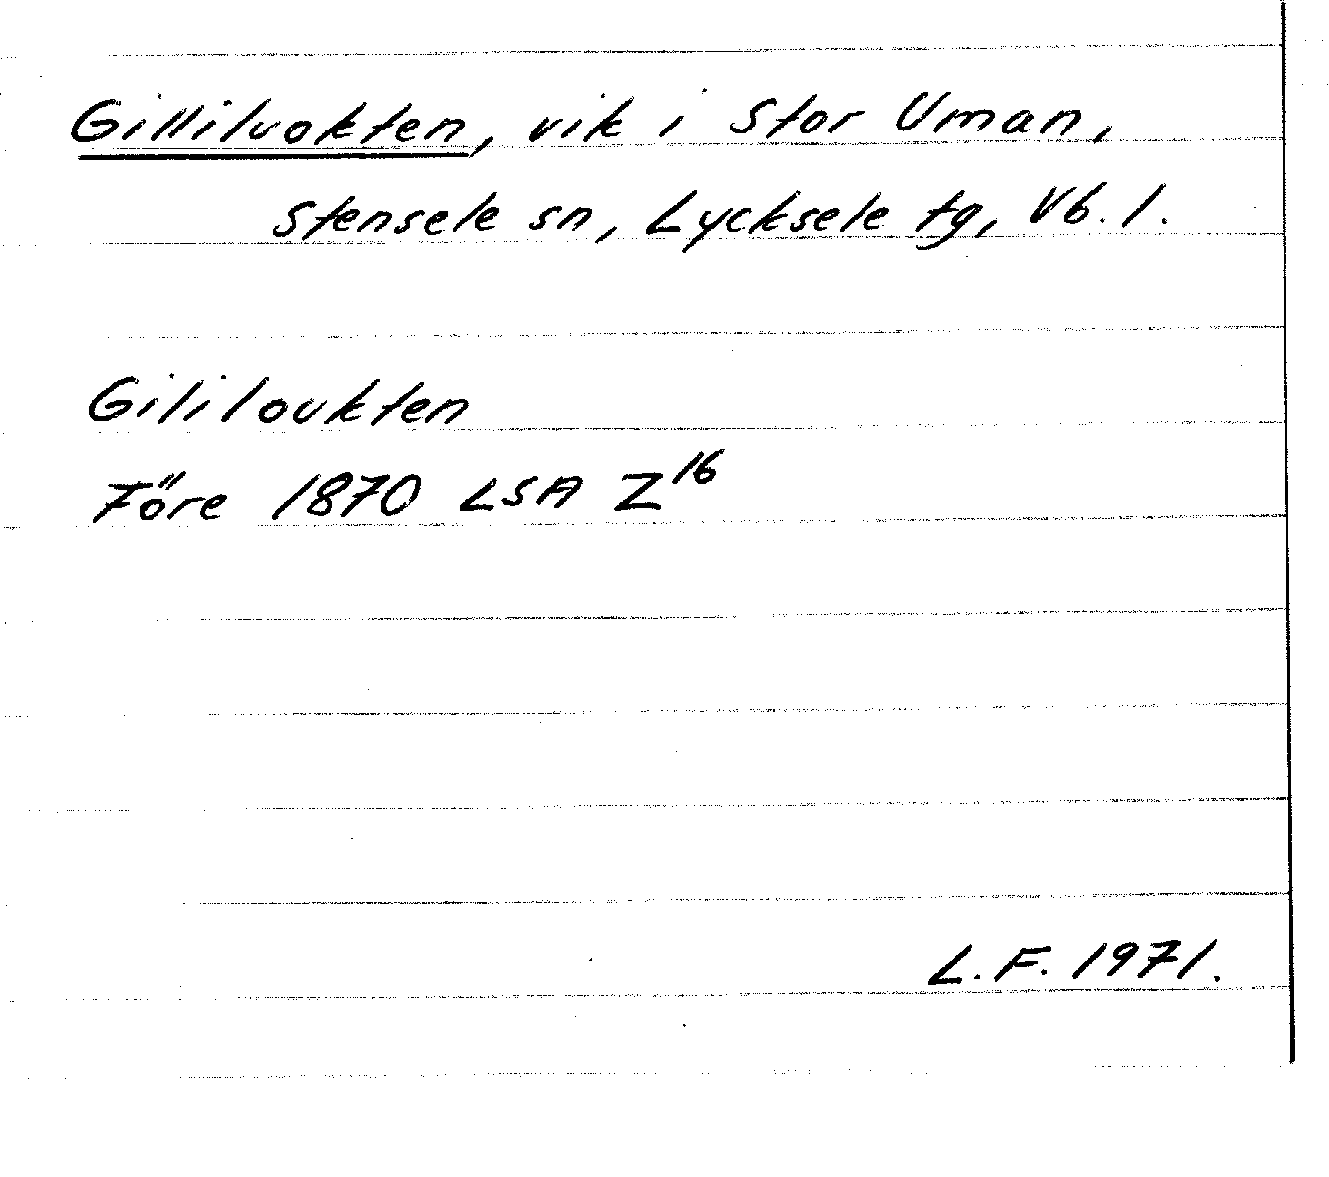 Gillilvokten, vik i Stor Uman,
Stensele sn, Lycksele tg, Vb. l.
Gililovkten
Före 1870 LSA Z16
L.F. 1971.